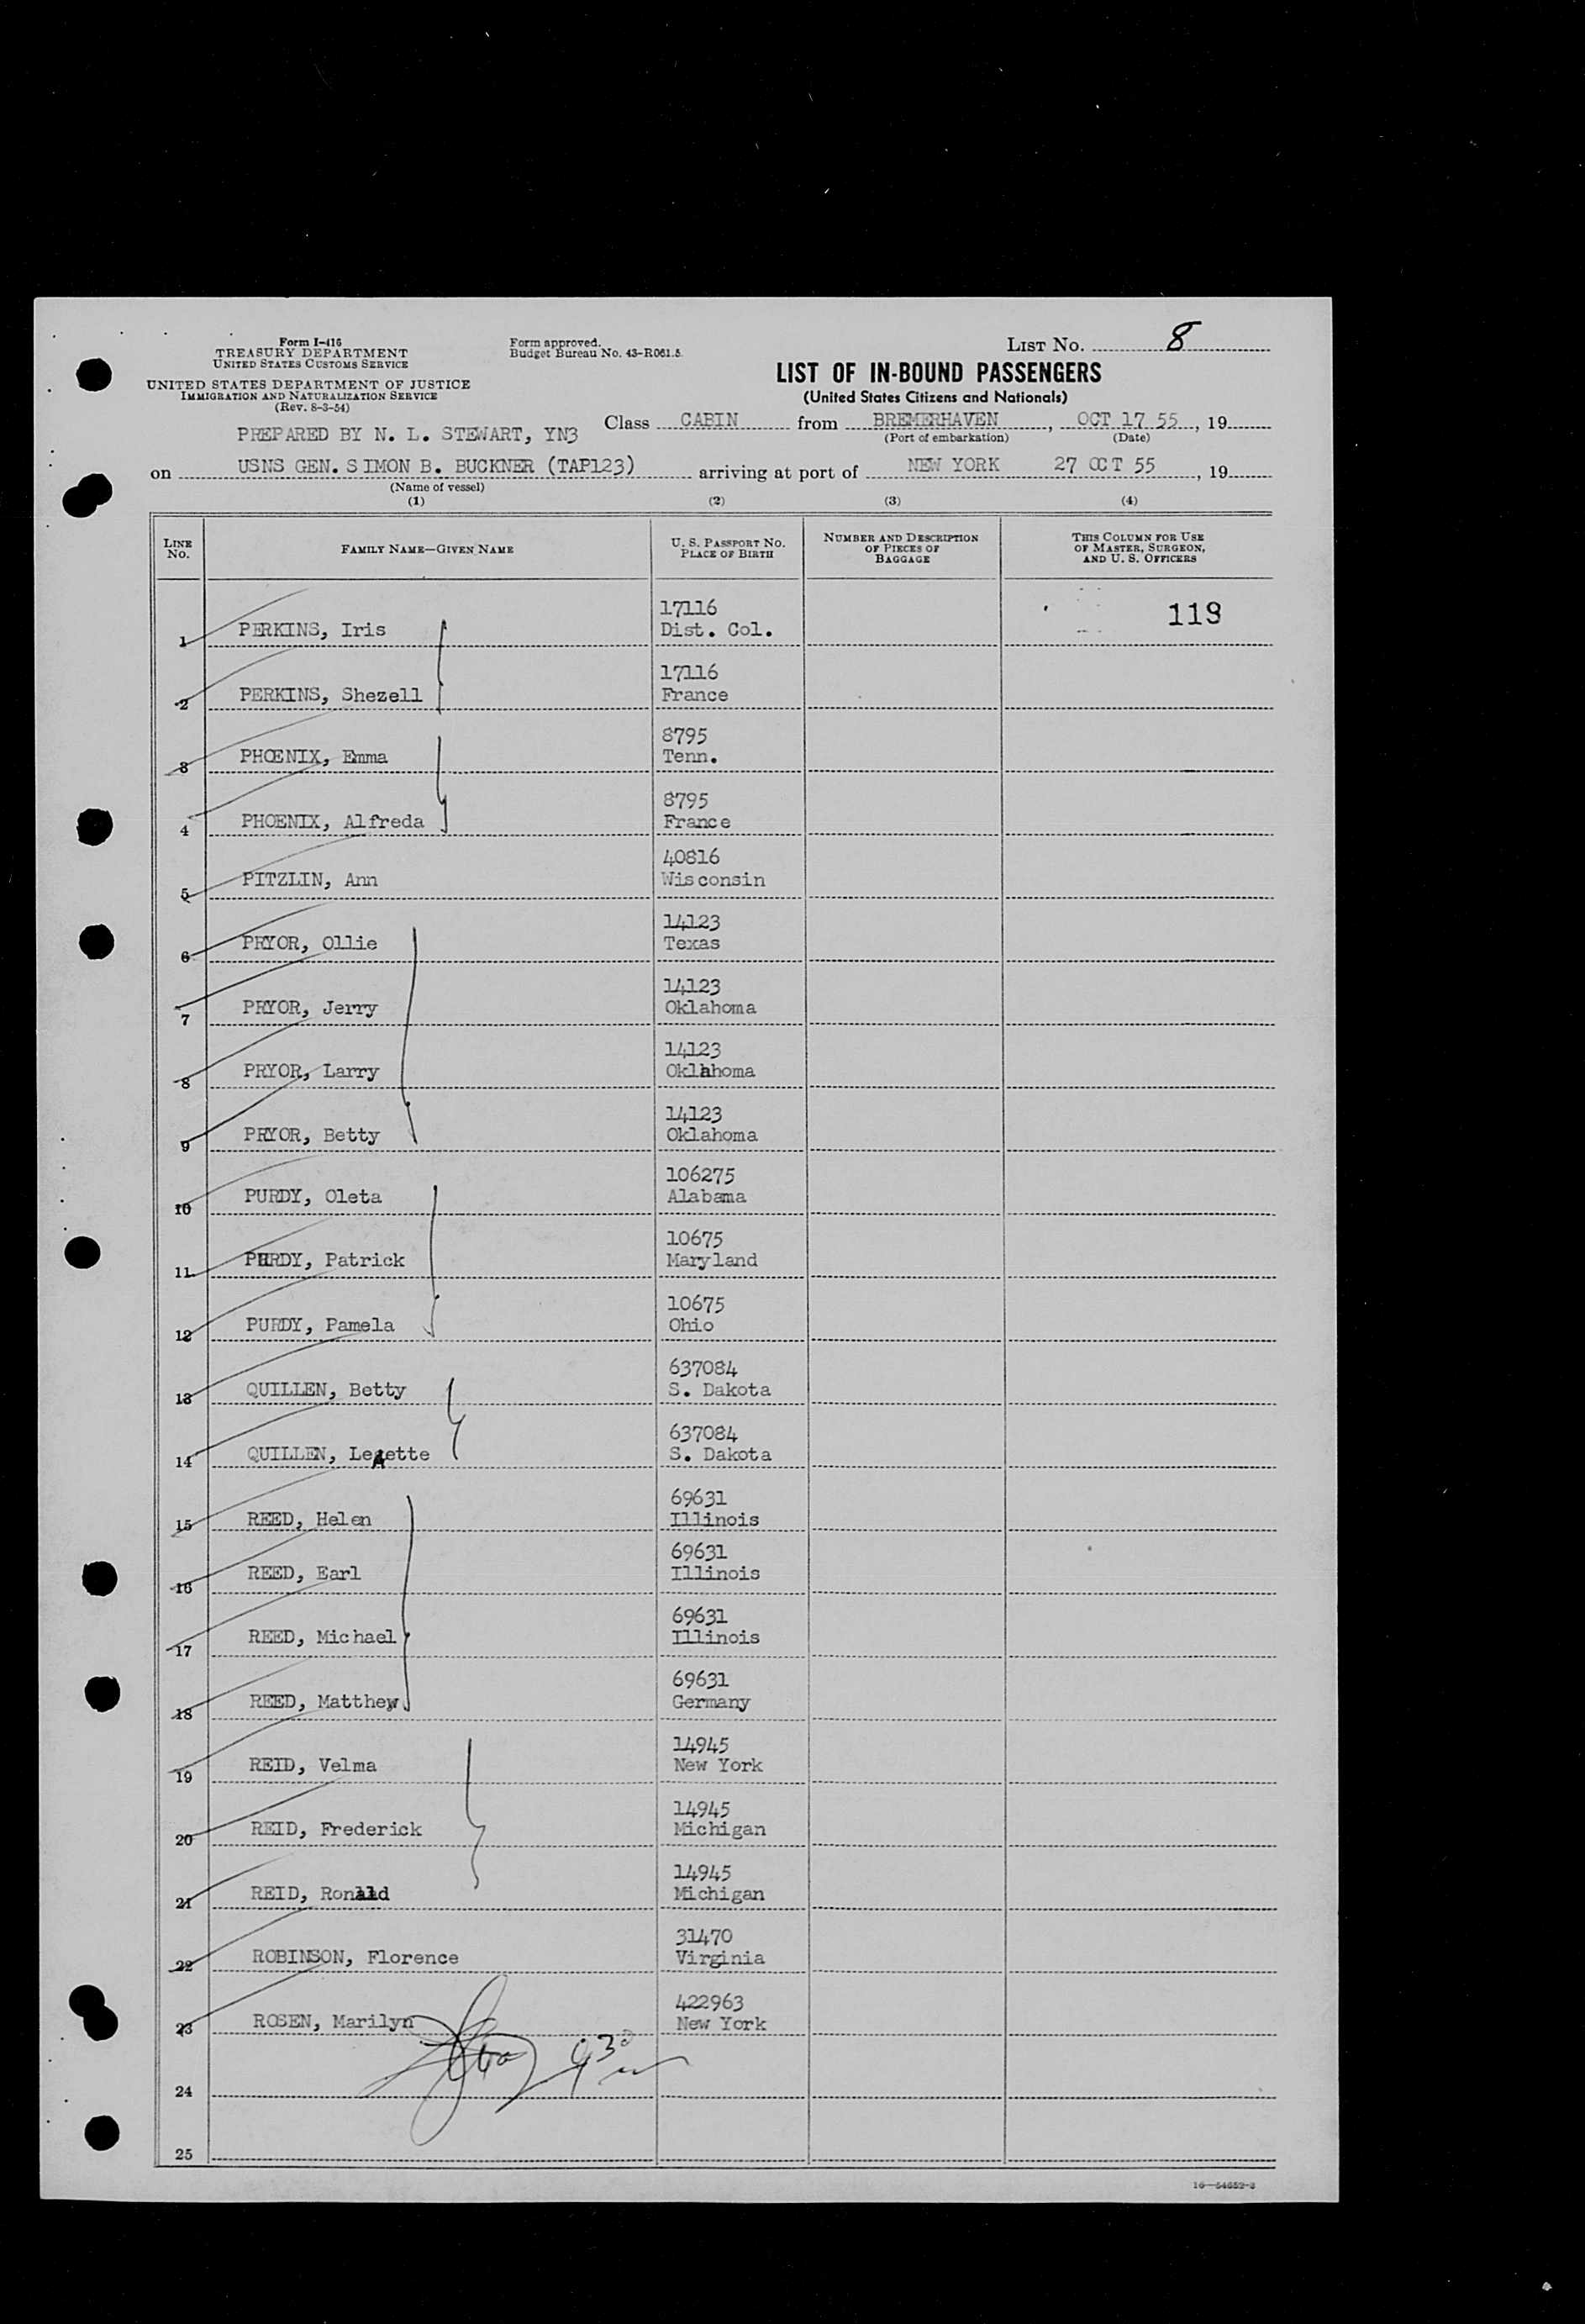 Form I-416
TREASURY DEPARTMENT
UNITED STATES CUSTOMS SERVICE
UNITED STATES DEPARTMENT OF JUSTICE
IMMIGRATION AND NATURALIZATION SERVICE
(Rev. 8-3-54)
Form approved.
Budget Bureau No. 43-R061.5.
LIST NO. 8
LIST OF IN-BOUND PASSENGERS
(United States Citizens and Nationals)
PREPARED BY N. L. STEWART, YN3
Class CABIN from BREMERHAVEN, OCT 17 55, 19
(Port of embarkation) (Date)
on USNS GEN. SIMON B. BUCKNER (TAP123) arriving at port of NEW YORK 27 OCT 55, 19
(Name of vessel)
(1) (2) (3) (4)
LINE NO. FAMILY NAME—GIVEN NAME U. S. PASSPORT NO. PLACE OF BIRTH NUMBER AND DESCRIPTION OF PIECES OF BAGGAGE THIS COLUMN FOR USE OF MASTER, SURGEON, AND U. S. OFFICERS
119
1 PERKINS, Iris 17116 Dist. Col.
2 PERKINS, Shezell 17116 France
3 PHOENIX, Emma 8795 Tenn.
4 PHOENIX, Alfreda 8795 France
5 PITZLIN, Ann 40816 Wisconsin
6 PRYOR, Ollie 14123 Texas
7 PRYOR, Jerry 14123 Oklahoma
8 PRYOR, Larry 14123 Oklahoma
9 PRYOR, Betty 14123 Oklahoma
10 PURDY, Oleta 106275 Alabama
11 PURDY, Patrick 10675 Maryland
12 PURDY, Pamela 10675 Ohio
13 QUILLEN, Betty 637084 S. Dakota
14 QUILLEN, LeAette 637084 S. Dakota
15 REED, Helen 69631 Illinois
16 REED, Earl 69631 Illinois
17 REED, Michael 69631 Illinois
18 REED, Matthew 69631 Germany
19 REID, Velma 14945 New York
20 REID, Frederick 14945 Michigan
21 REID, Ronald 14945 Michigan
22 ROBINSON, Florence 31470 Virginia
23 ROSEN, Marilyn 422963 New York
24
25